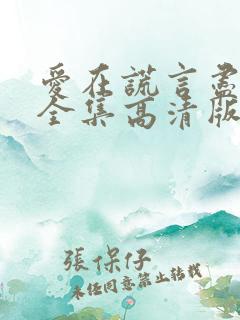 愛在謊言盡
全集高清版
張保仔
未经同意禁止转载